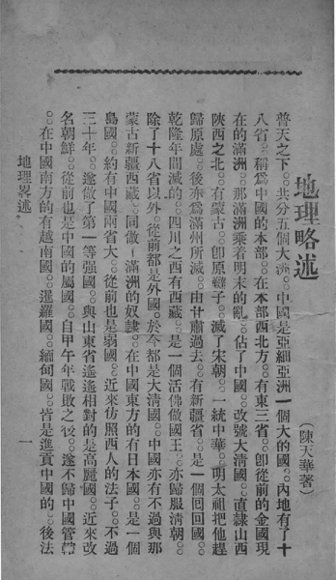 地理略述
（陳天華著）
普天之下。。共分五個大洲。。中國是亞細亞洲一個大的國。。內地有了十
八省。。稱爲中國的本部。。在本部西北方。。有東三省。。卽從前的金國現
在的滿洲。。那滿洲乘着明末的亂。。佔了中國。。改號大淸國。。直隸山西
陝西之北。。有蒙古。。卽原韃子。。滅了宋朝。。一統中華。。明太祖把他趕
歸原處。。後亦爲滿州所滅。。由甘肅過去。。有新疆省。。是一個囘囘國。。
乾隆年間滅的。。四川之西有西藏。。是一個活佛做國王。。亦歸服淸朝。。
除了十八省以外。。從前都是外國。。於今都是大淸國。。中國亦有不過與那
蒙古新疆西藏。。同做滿洲的奴隸。。在中國東方的有日本國。。是一個
島國。。約有中國兩省大。。從前也是弱國。。近來仿照西人的法子。。不過
三十年。。遂做了第一等强國。。與山東省遙遙相對的是高麗國。。近來改
名朝鮮。。從前也是中國的屬國。。自甲午年戰敗之後。。遂不歸中國管轄
。。在中國南方的有越南國。。暹羅國。。緬甸國。。皆是進貢中國的。。後法
地理畧述
一